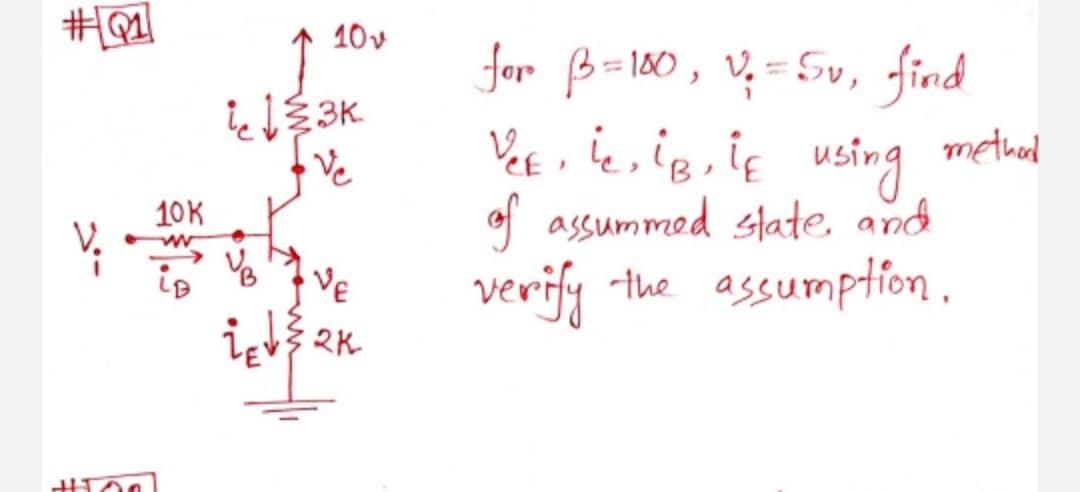 #Q1
10v
ic ↓ 3K
Vc
10K
Vi
iB
VB
VE
iE ↓ 2K
for β=100, Vi = 5v, find
VCE, ic, iB, iE using method
of assummed state and
verify the assumption.